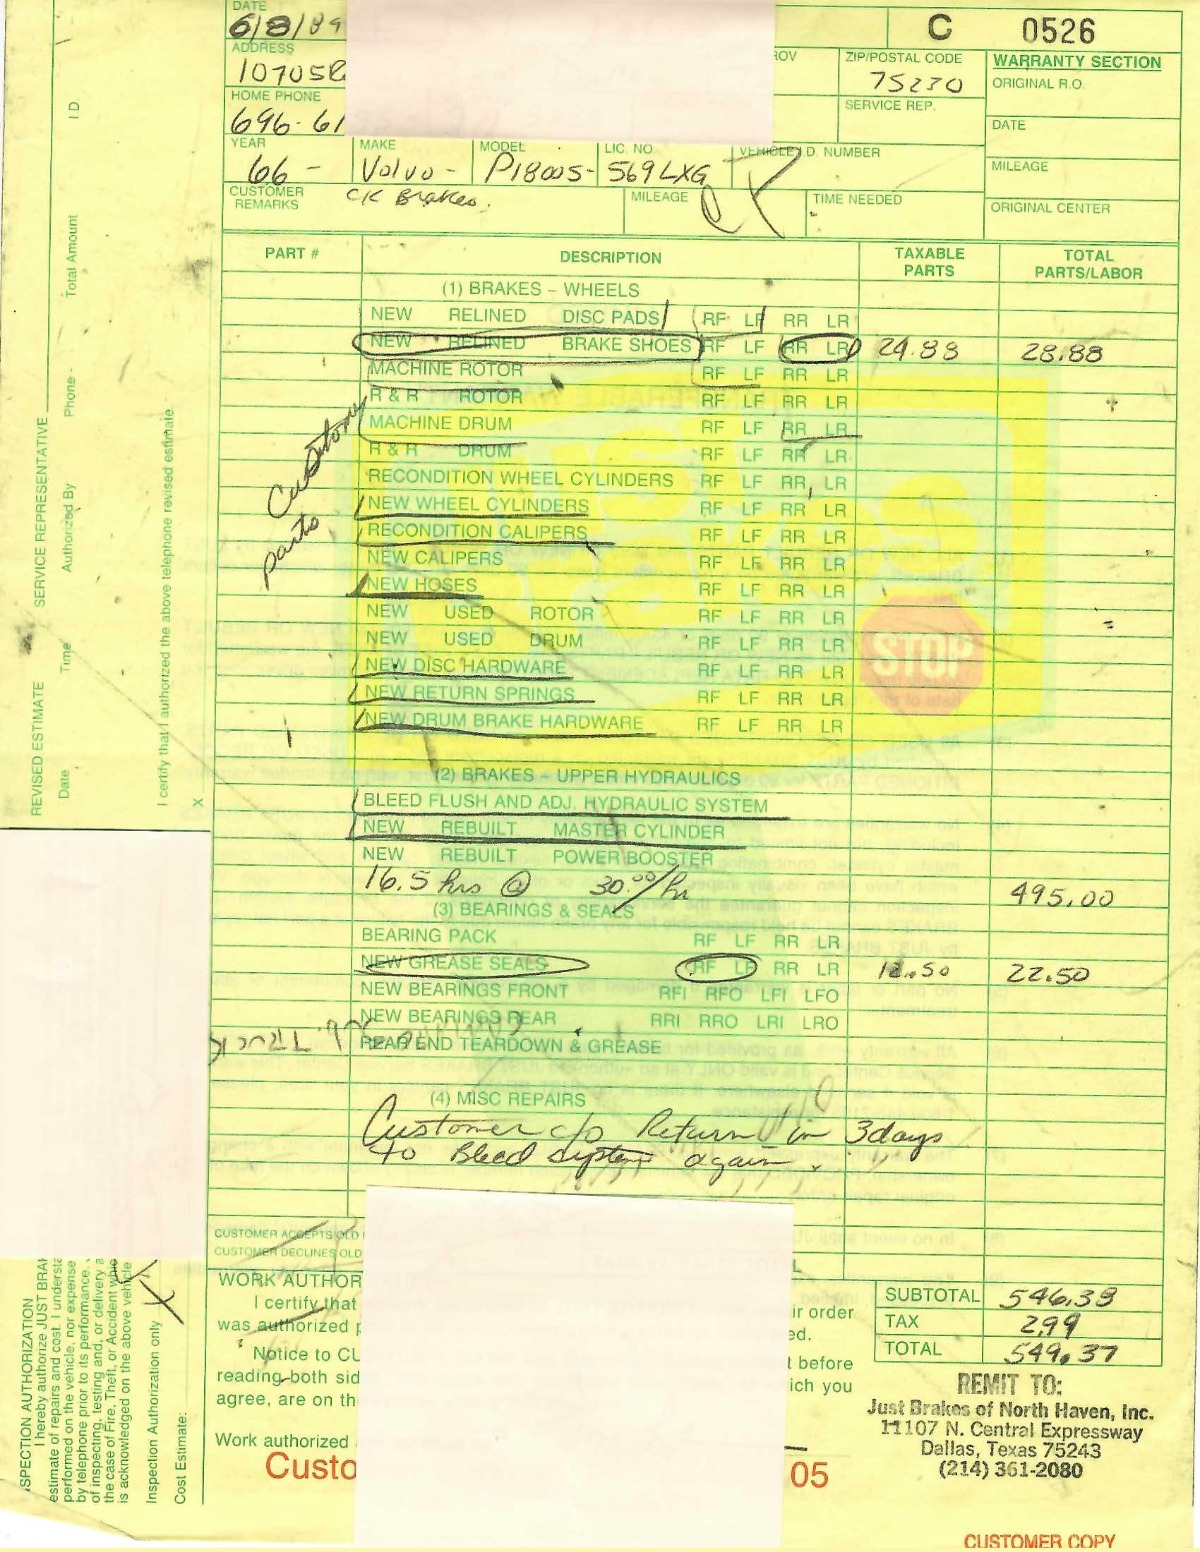 DATE
6/8/89
C 0526
ADDRESS
10705
ZIP/POSTAL CODE
75230
WARRANTY SECTION
ORIGINAL R.O.
HOME PHONE
696-61
SERVICE REP.
DATE
YEAR MAKE MODEL LIC. NO. VEHICLE I.D. NUMBER
66- Volvo- P1800S- 569LXG
MILEAGE
CUSTOMER REMARKS
CK Brakes.
MILEAGE
TIME NEEDED
ORIGINAL CENTER
PART # DESCRIPTION TAXABLE PARTS TOTAL PARTS/LABOR
(1) BRAKES – WHEELS
NEW RELINED DISC PADS RF LF RR LR
NEW RELINED BRAKE SHOES RF LF RR LR 24.88 28.88
MACHINE ROTOR RF LF RR LR
R & R ROTOR RF LF RR LR
MACHINE DRUM RF LF RR LR
R & R DRUM RF LF RR LR
RECONDITION WHEEL CYLINDERS RF LF RR LR
NEW WHEEL CYLINDERS RF LF RR LR
RECONDITION CALIPERS RF LF RR LR
NEW CALIPERS RF LF RR LR
NEW HOSES RF LF RR LR
NEW USED ROTOR RF LF RR LR
NEW USED DRUM RF LF RR LR
NEW DISC HARDWARE RF LF RR LR
NEW RETURN SPRINGS RF LF RR LR
NEW DRUM BRAKE HARDWARE RF LF RR LR
Customer parts
STOP
(2) BRAKES – UPPER HYDRAULICS
BLEED FLUSH AND ADJ. HYDRAULIC SYSTEM
NEW REBUILT MASTER CYLINDER
NEW REBUILT POWER BOOSTER
16.5 hrs @ 30.00/hr 495.00
(3) BEARINGS & SEALS
BEARING PACK RF LF RR LR
NEW GREASE SEALS RF LF RR LR 12.50 22.50
NEW BEARINGS FRONT RFI RFO LFI LFO
NEW BEARINGS REAR RRI RRO LRI LRO
REAR END TEARDOWN & GREASE
(4) MISC REPAIRS
Customer c/o Return in 3 days
to Bleed system again.
CUSTOMER ACCEPTS OLD
CUSTOMER DECLINES OLD
WORK AUTHOR
I certify that
was authorized
Notice to CU
reading both sid
agree, are on th
Work authorized
ir order
ed.
t before
ich you
SUBTOTAL 546.38
TAX 2.99
TOTAL 549.37
REMIT TO:
Just Brakes of North Haven, Inc.
11107 N. Central Expressway
Dallas, Texas 75243
(214) 361-2080
Custo
05
CUSTOMER COPY
REVISED ESTIMATE SERVICE REPRESENTATIVE I D
Date Time Authorized By Phone - Total Amount
I certify that I authorized the above telephone revised estimate.
X
SPECTION AUTHORIZATION
I hereby authorize JUST BRAK
estimate of repairs and cost. I understa
performed on the vehicle, nor expense
by telephone prior to its performance.
of inspecting, testing and, or delivery a
the case of Fire, Theft, or Accident whe
is acknowledged on the above vehicle
Inspection Authorization only X
Cost Estimate: